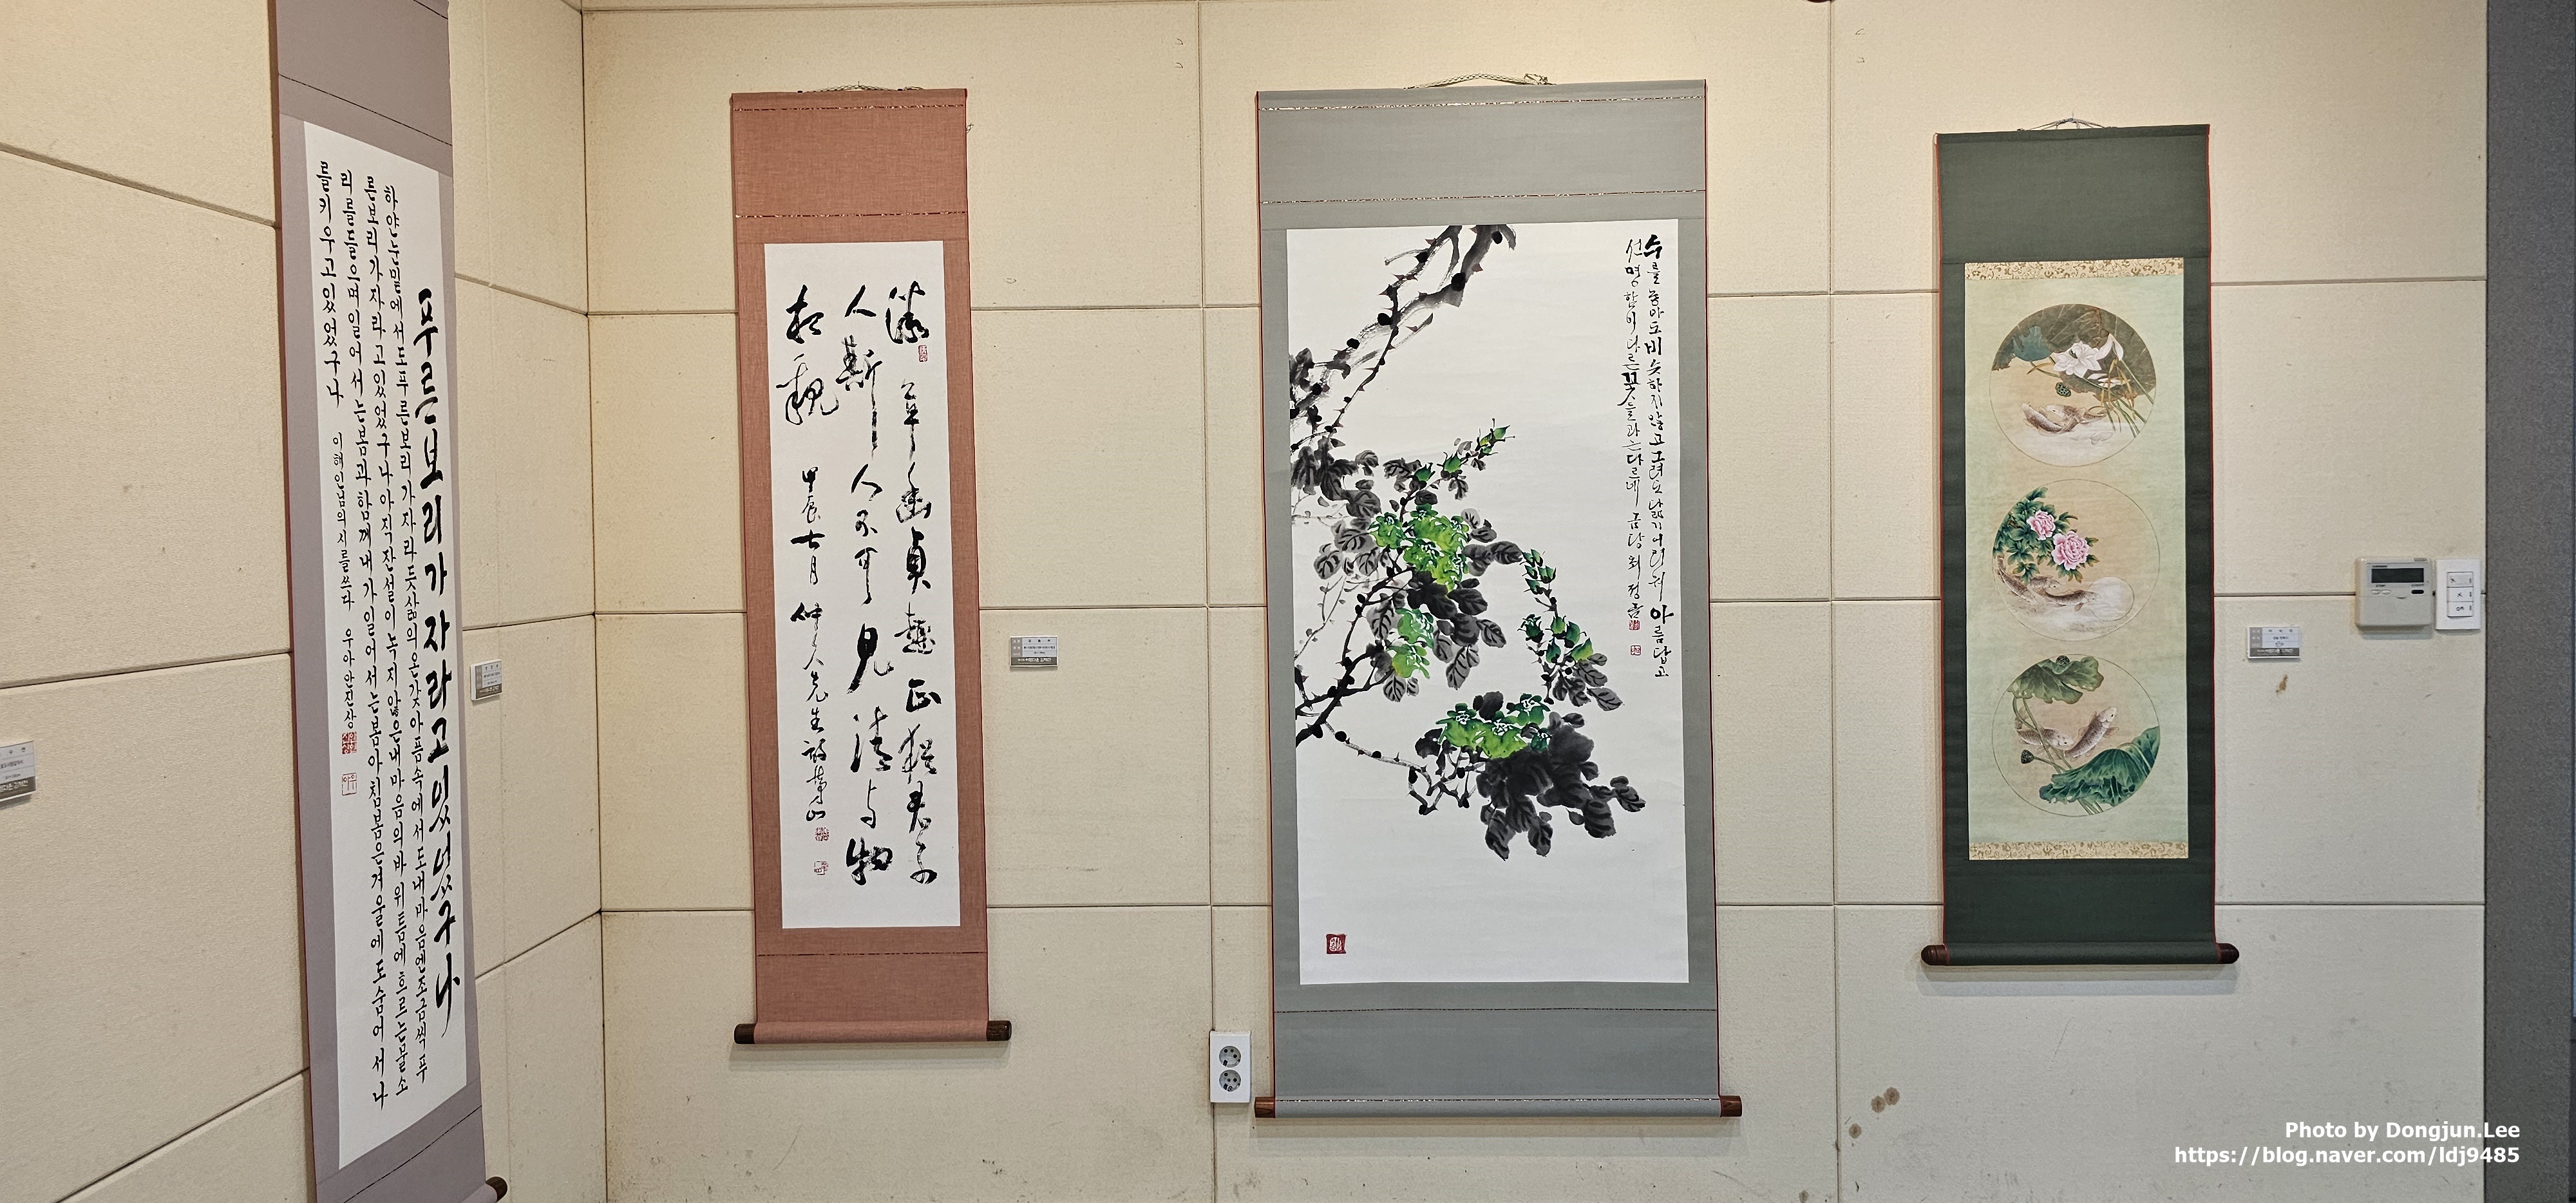 푸른보리가자라고있었구나
하얀눈밑에서도푸른보리가자라듯삶의온갖아픔속에서도내마음엔조금씩푸
른보리가자라고있었구나아직잔설이녹지않은내마음의바위틈에흐르는물소
리를들으며일어서는봄과함께내가일어서는봄아침봄은겨울에도숨어서나
를키우고있었구나 이해인님의시를쓰다 우아안진상
草幽貞趣正猶君子
人斯人不可見清与物
相親 甲辰七月 仲人先生詩
수를놓아도비슷하지않고그려도닮기어려워아름답고
선명함이다른꽃들과는다르네 금당최정금
Photo by Dongjun.Lee
https://blog.naver.com/ldj9485